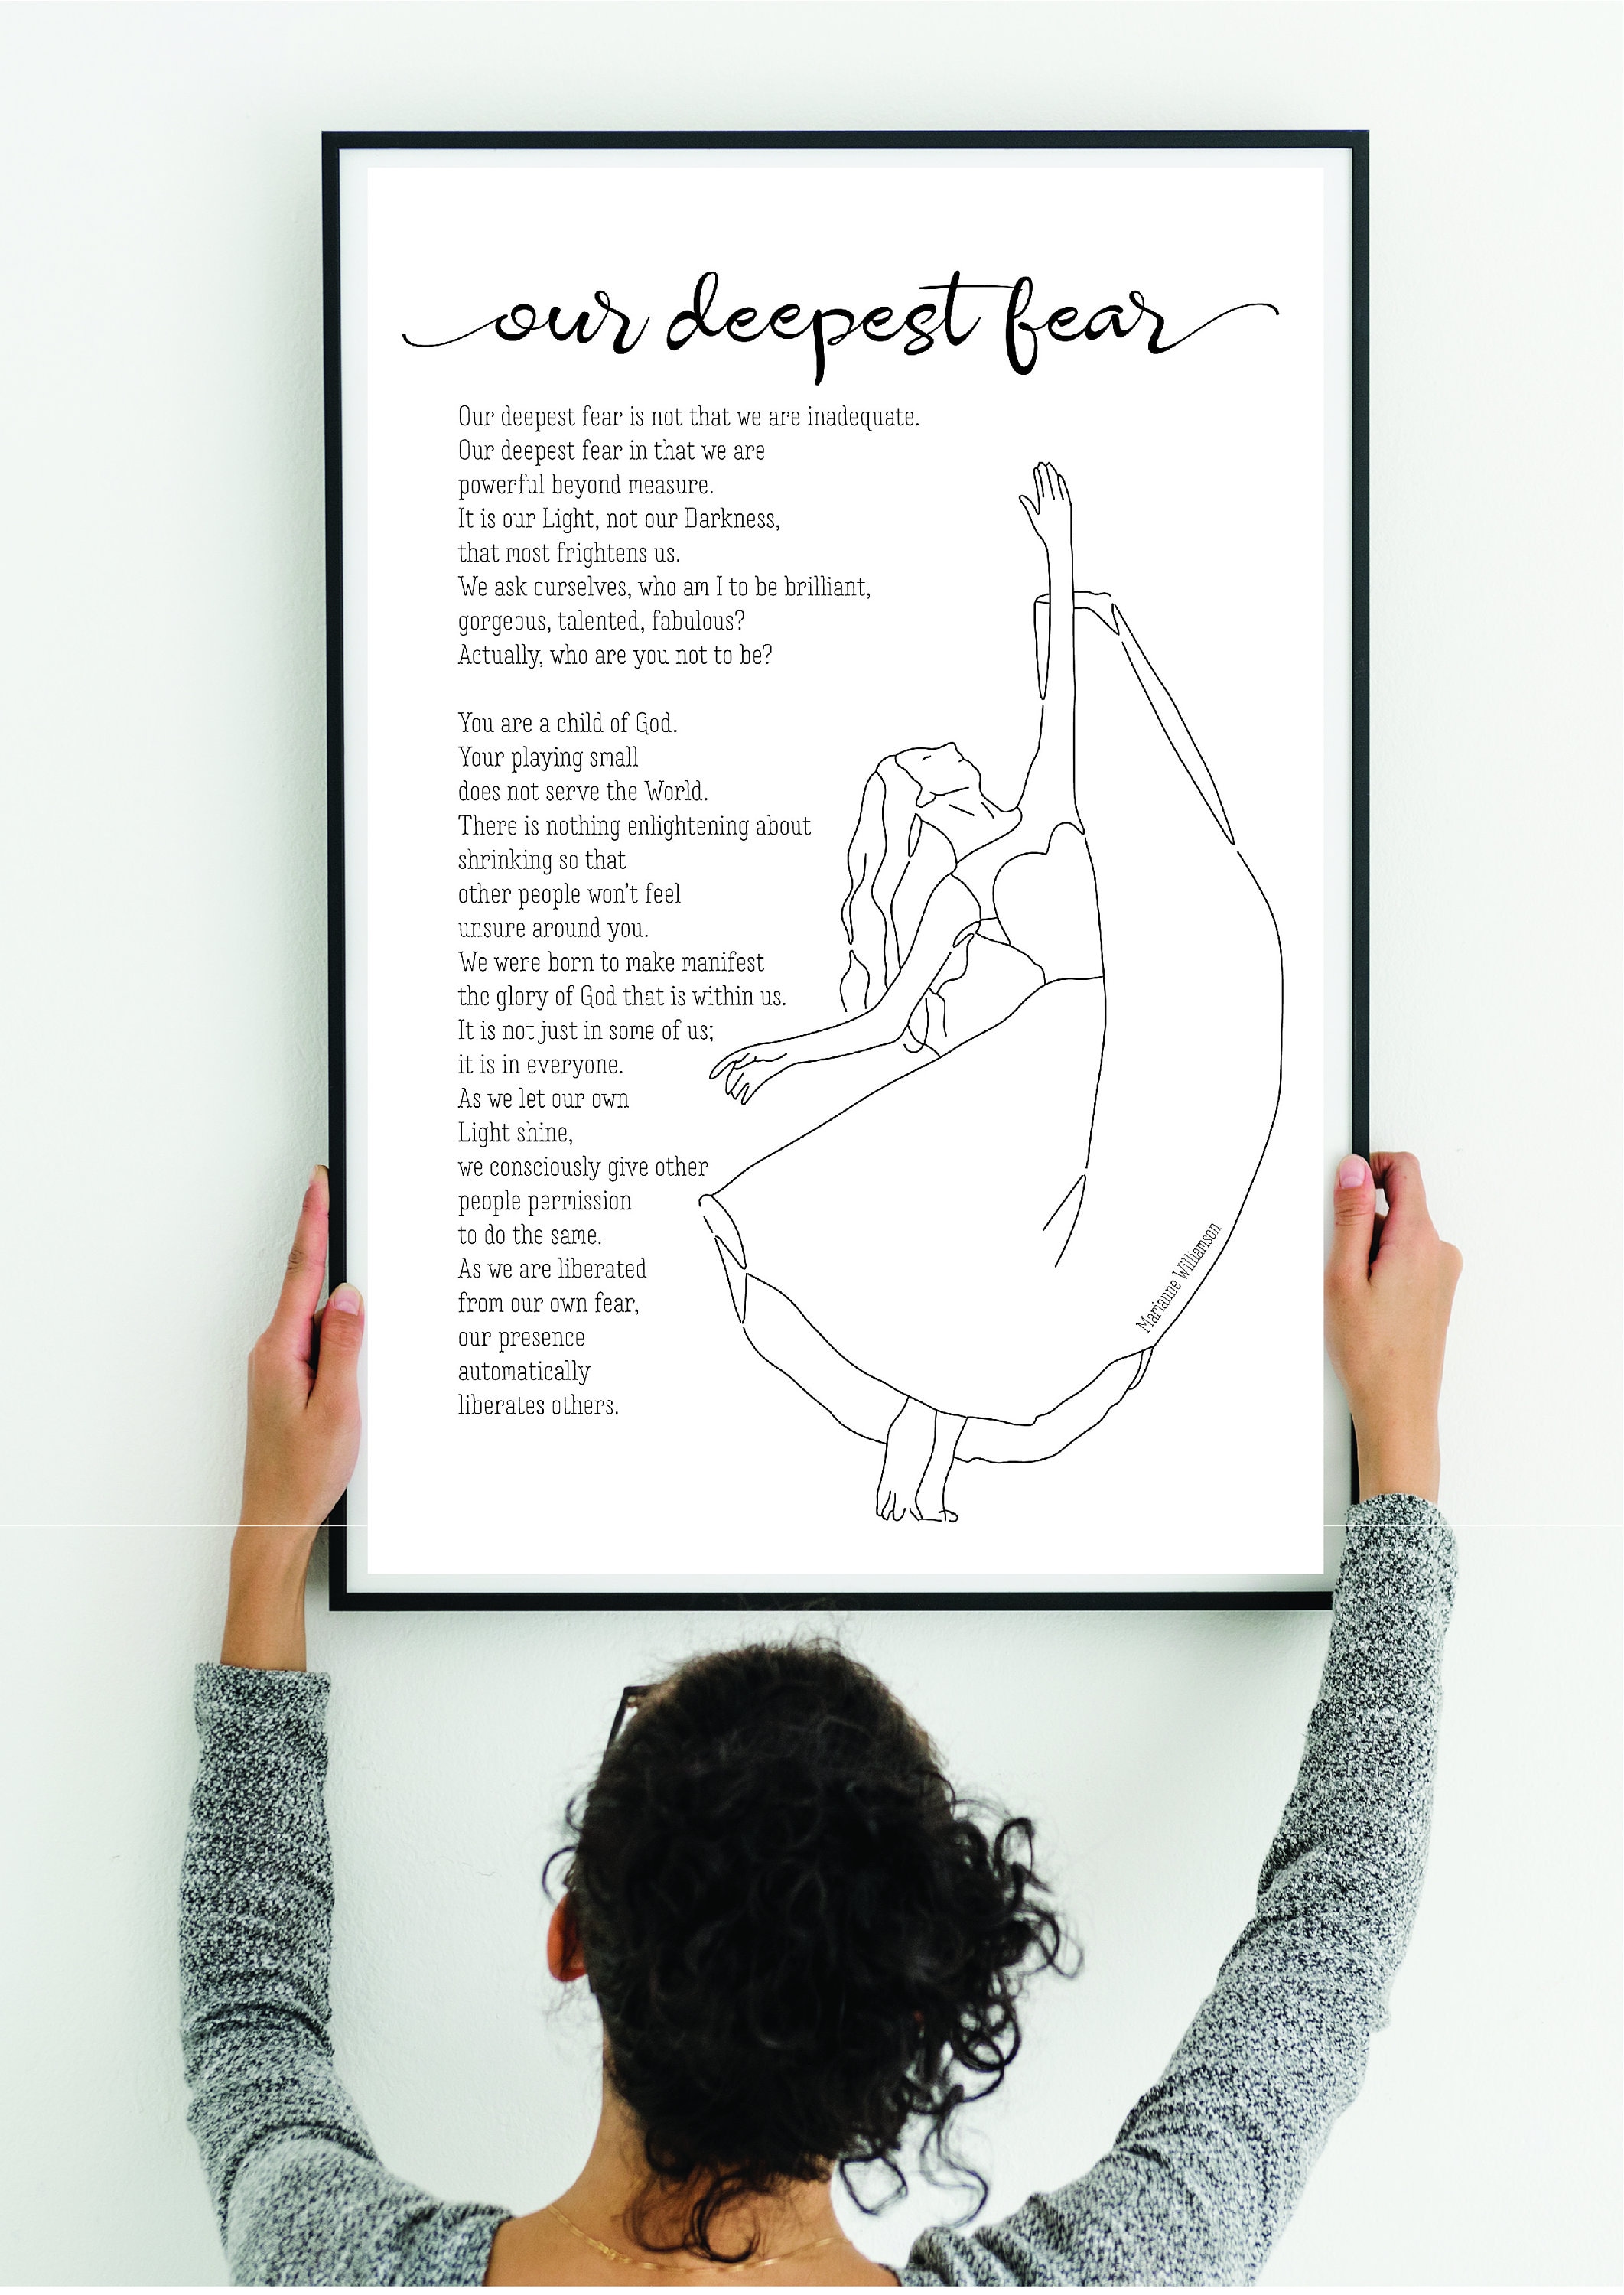 our deepest fear
Our deepest fear is not that we are inadequate.
Our deepest fear in that we are
powerful beyond measure.
It is our Light, not our Darkness,
that most frightens us.
We ask ourselves, who am I to be brilliant,
gorgeous, talented, fabulous?
Actually, who are you not to be?
You are a child of God.
Your playing small
does not serve the World.
There is nothing enlightening about
shrinking so that
other people won't feel
unsure around you.
We were born to make manifest
the glory of God that is within us.
It is not just in some of us;
it is in everyone.
As we let our own
Light shine,
we consciously give other
people permission
to do the same.
As we are liberated
from our own fear,
our presence
automatically
liberates others.
Marianne Williamson